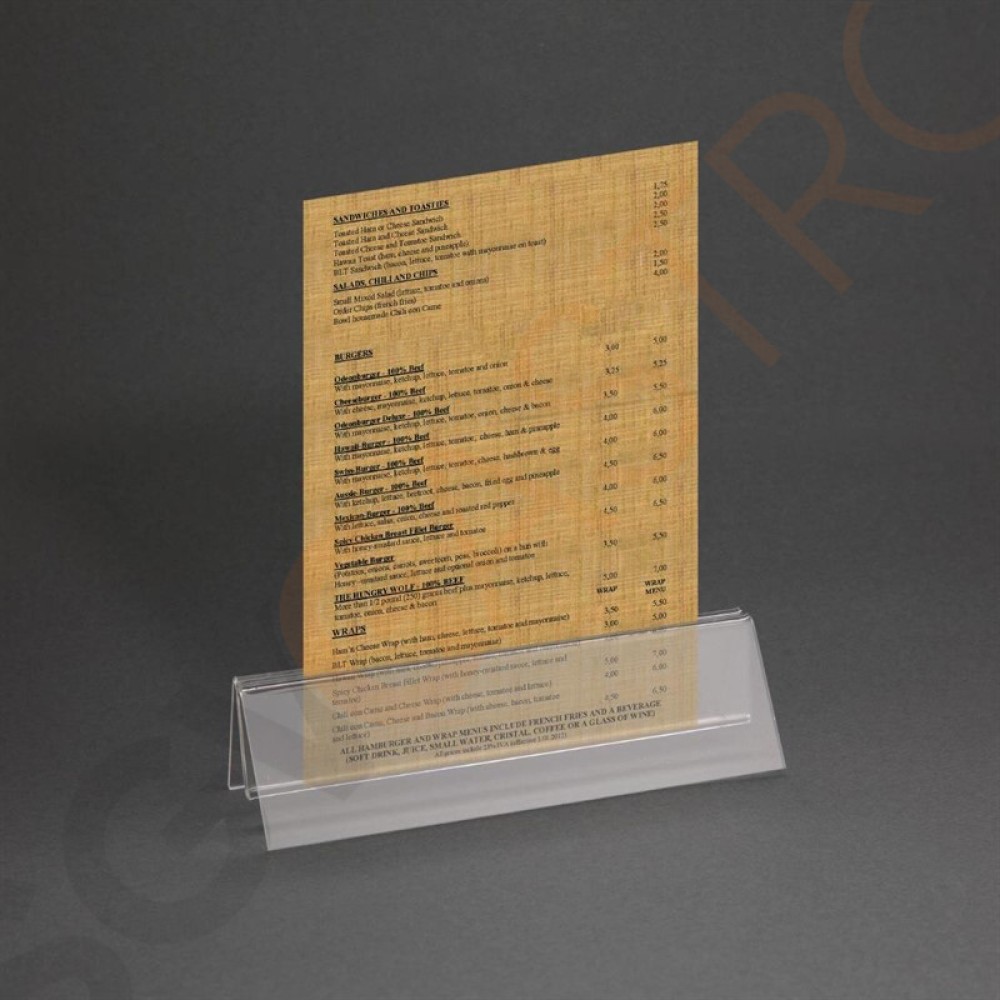 SANDWICHES AND TOASTIES
Toasted Ham or Cheese Sandwich 1,75
Toasted Ham and Cheese Sandwich 2,00
Toasted Cheese and Tomatoe Sandwich 2,00
Hawaii Toast (ham, cheese and pineapple) 2,50
BLT Sandwich (bacon, lettuce, tomatoe with mayonnaise on toast) 2,50
SALADS, CHILI AND CHIPS
Small Mixed Salad (lettuce, tomatoe and onions) 2,00
Order Chips (french fries) 1,50
Bowl housemade Chili con Carne 4,00
BURGERS
Odeonburger - 100% Beef 3,00 5,00
With mayonnaise, ketchup, lettuce, tomatoe and onion
Cheeseburger - 100% Beef 3,25 5,25
With cheese, mayonnaise, ketchup, lettuce, tomatoe, onion & cheese
Odeonburger Deluxe - 100% Beef 3,50 5,50
With mayonnaise, ketchup, lettuce, tomatoe, onion, cheese & bacon
Hawaii Burger - 100% Beef 4,00 6,00
With mayonnaise, ketchup, lettuce, tomatoe, cheese, ham & pineapple
Swiss Burger - 100% Beef 4,00 6,00
With mayonnaise, ketchup, lettuce, tomatoe, cheese, & egg
Aussie Burger - 100% Beef 4,50 6,50
With ketchup, lettuce, beetroot, cheese, bacon, fried egg and pineapple
Mexican Burger - 100% Beef 4,00 6,00
With lettuce, salsa, onion, cheese and roasted red pepper
Spicy Chicken Breast Fillet Burger 4,50 6,50
With honey-mustard sauce, lettuce and tomatoe
Vegetable Burger 3,50 5,50
(Potatoes, onions, carrots, sweetcorn, peas, broccoli) on a bun with
Honey-mustard sauce, lettuce and optional onion and tomatoe
THE HUNGRY WOLF - 100% BEEF 5,00 7,00
More than 1/2 pound (250) grams beef plus mayonnaise, ketchup, lettuce,
tomatoe, onion, cheese & bacon
WRAPS WRAP WRAP MENU
Ham'n Cheese Wrap (with ham, cheese, lettuce, tomatoe and mayonnaise) 3,50 5,50
BLT Wrap (bacon, lettuce, tomatoe and mayonnaise) 3,00 5,00
Spicy Chicken Breast Fillet Wrap (with honey-mustard sauce, lettuce and 5,00 7,00
tomatoe)
Chili con Carne and Cheese Wrap (with cheese, tomatoe and lettuce) 4,00 6,00
Chili con Carne, Cheese and Bacon Wrap (with cheese, bacon, tomatoe 4,50 6,50
and lettuce)
ALL HAMBURGER AND WRAP MENUS INCLUDE FRENCH FRIES AND A BEVERAGE
(SOFT DRINK, JUICE, SMALL WATER, CRISTAL, COFFEE OR A GLASS OF WINE)
All prices include 23% IVA